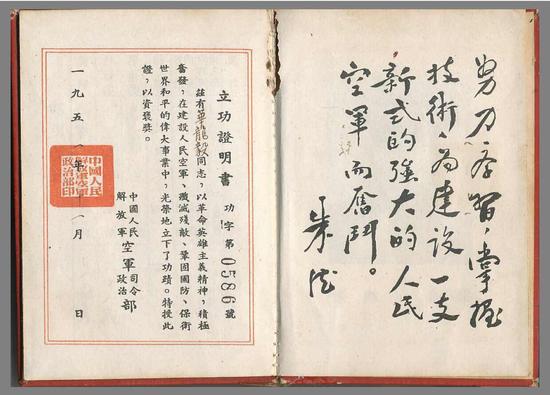 努力学習,掌握
技術,為建設一支
新式的強大的人民
空軍而奮鬥。
朱德
立功證明書 功字第0586號
茲有華龍毅同志,以革命英雄主義精神,積極
奮發,在建設人民空軍、殲滅殘敵、鞏固國防、保衛
世界和平的偉大事業中,光榮地立下了功蹟。特授此
證,以資褒獎。
中國人民
解放軍
空軍
司令
政治
部
一九五一年 一月 日
中國人民
解放軍空軍
政治部印